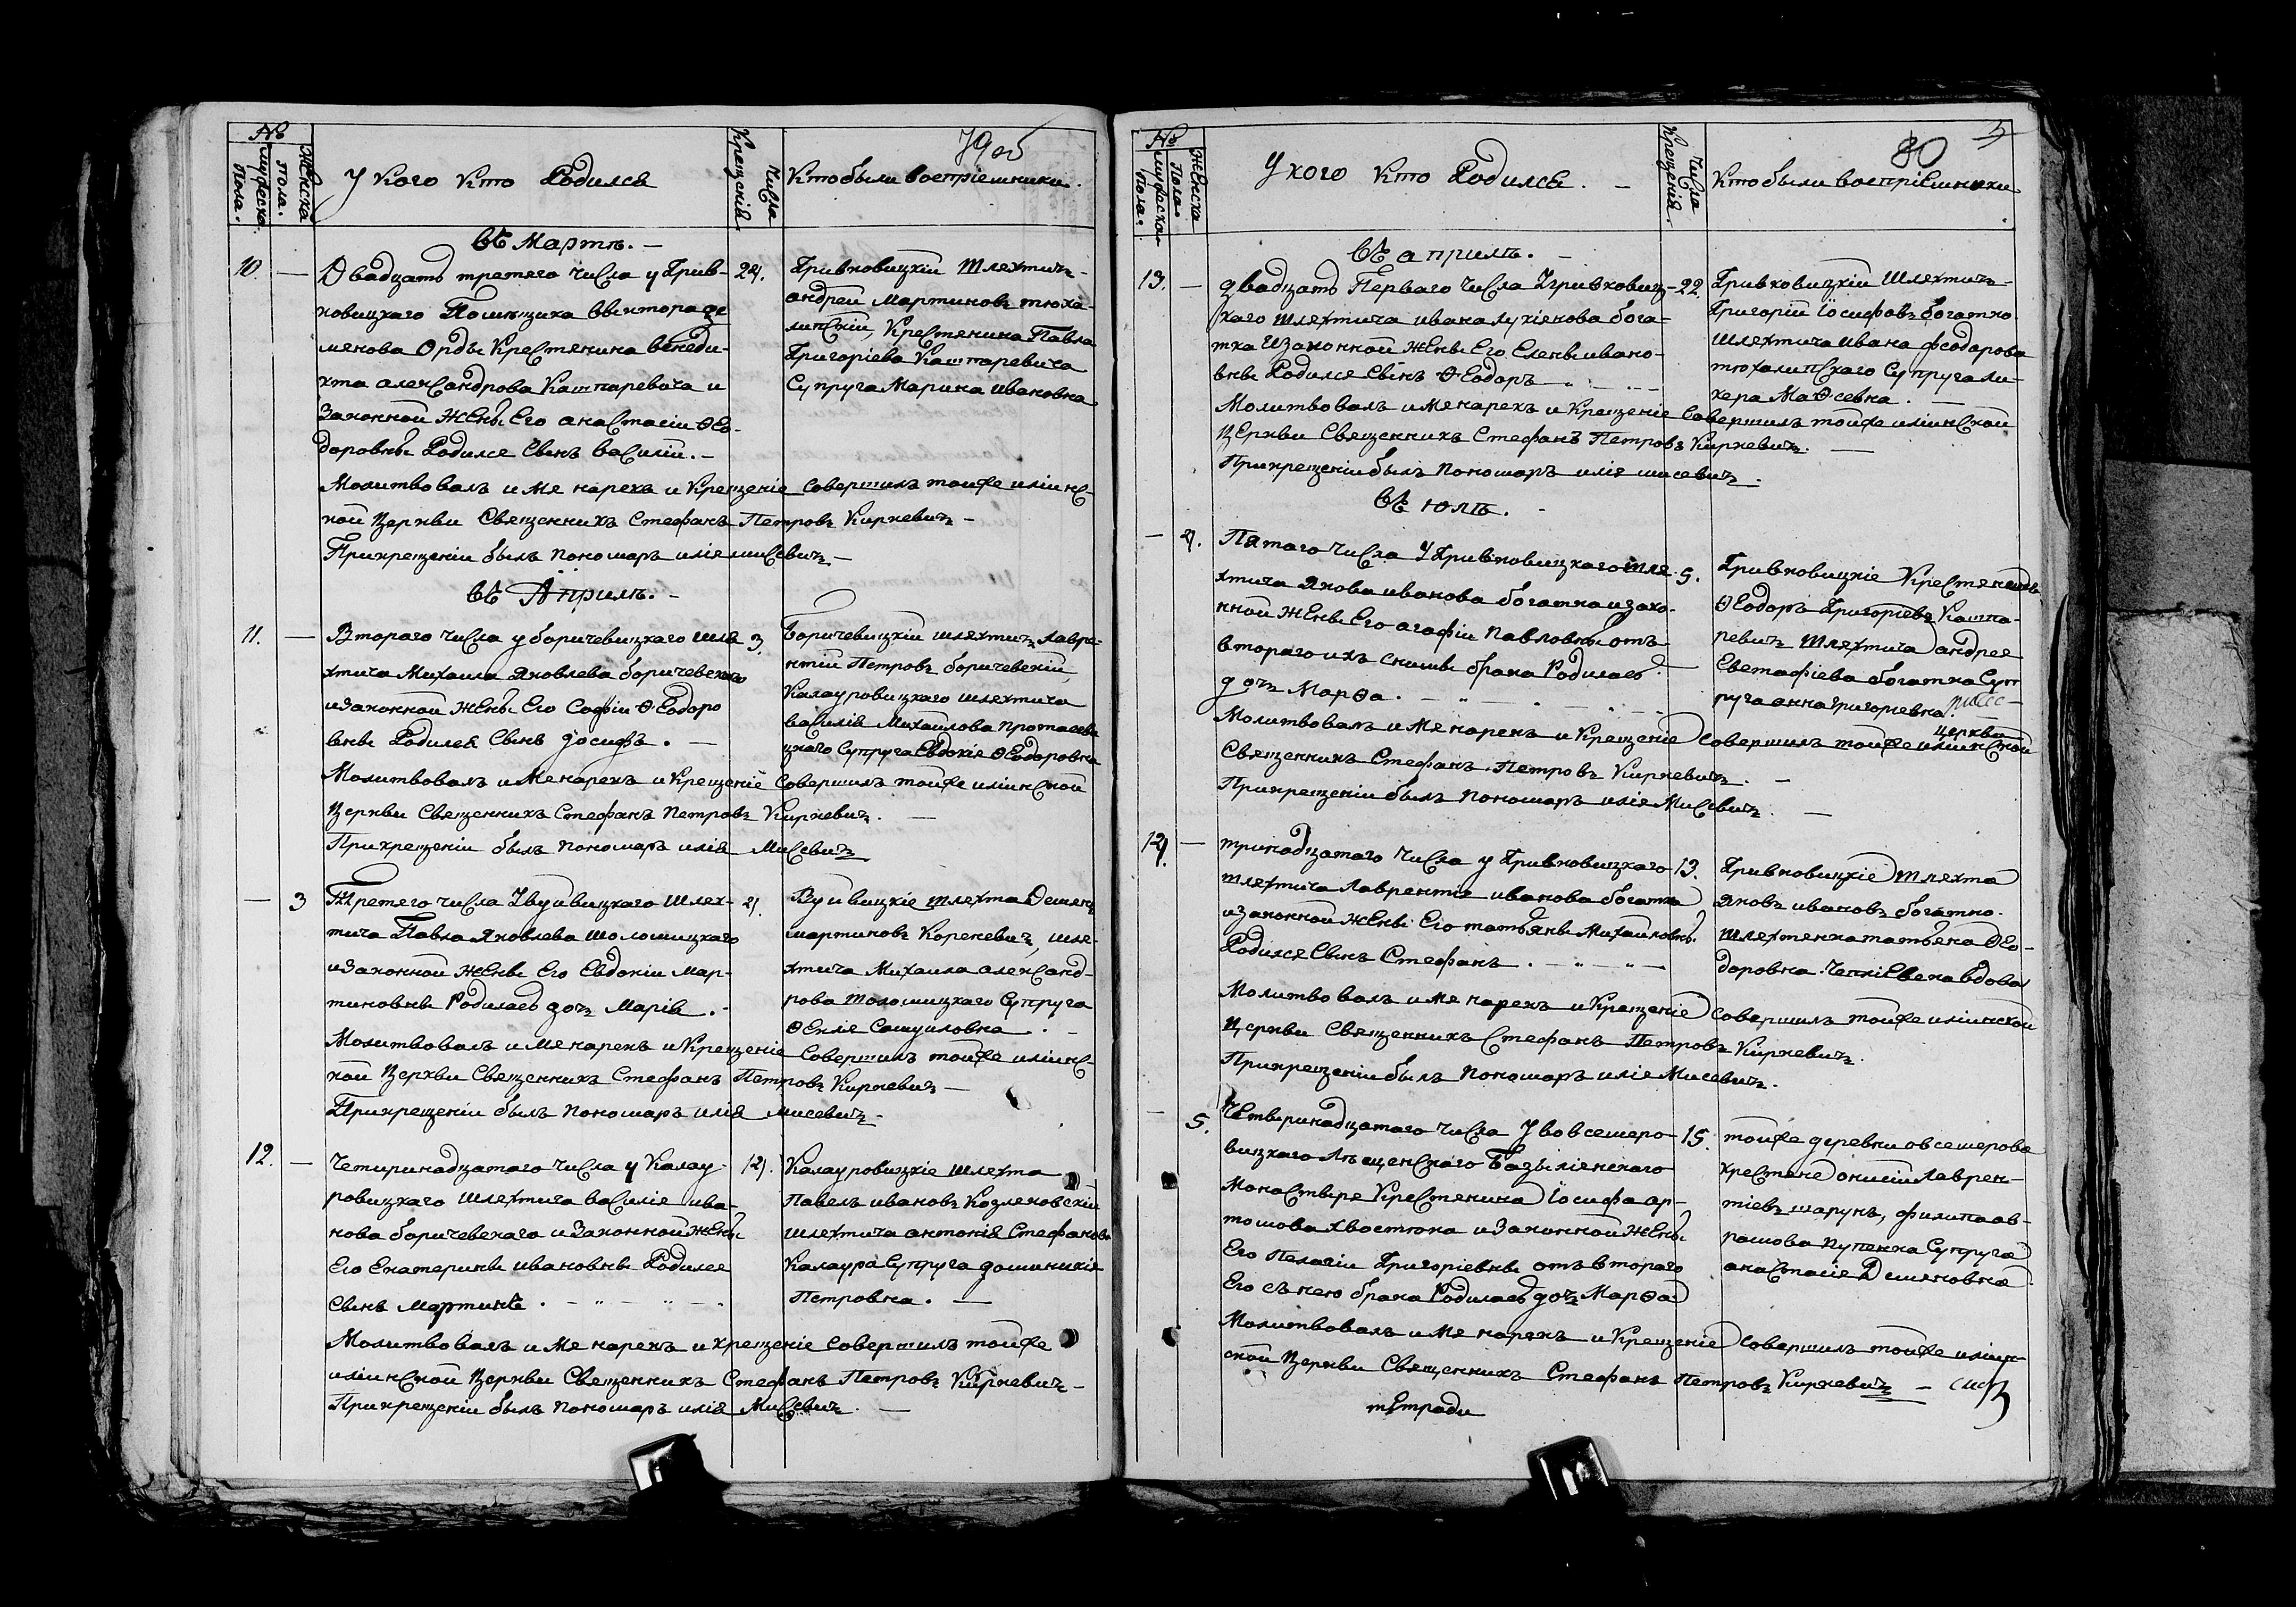 79 об
№
мужеска пола.
женска пола.
У кого кто Родился
Числа Крещенія
Кто были воспріемники.
Въ Мартѣ. —
10. — Двадцать третего числа у Грив-
ковицкаго Помѣщика Виктора де
менова Орды Крестянина венеди-
кта александрова Кашпаревича и
Законной Жены Его анастасіи Ѳео-
доровны Родился Сынъ василій. —
24. Гривковицкіи Шляхтичъ
андреи Мартиновъ тюха-
липскіи, Крестянина Павла
Григоріева Кашпаревича
Супруга Марина ивановна
Молитвовалъ имя нарекъ и Крещеніе совершилъ тойже иліинс-
кой Церкви Священникъ Стефанъ Петровъ Киркевичъ —
Прикрещеніи былъ пономаръ илія мисевичъ —
Въ Априлѣ. —
11. — Втораго числа у боричевицкаго шля
хтича Михаила Яковлева боричевскаго
изаконной Жены Его Софіи Ѳеодоро
вны Родился Сынъ іосифъ. —
3. Боричевицкіи шляхтичъ Лавре-
нтіи Петровъ боричевскіи,
Калауровицкаго шляхтича
василія Михаилова протасови
цкаго Супруга Евдокія Ѳеодоровна
Молитвовалъ имя нарекъ и Крещеніе совершилъ тойже иліинской
Церкви Священникъ Стефанъ Петровъ Киркевичъ. —
Прикрещеніи былъ пономаръ илія Мисевичъ
— 3 Третего числа Увуивицкаго Шлях-
тича Павла Яковлева шоломицкаго
изаконной Жены Его Евдокіи Мар-
тиновны Родилась дочъ Марія. —
4. Вуивицкіе шляхта Демянъ
мартиновъ Кореневичъ, шля-
хтича Михаила александ-
рова шоломицкаго Супруга
Ѳекля Самуиловна. —
Молитвовалъ имя нарекъ и Крещеніе Совершилъ тойже иліинс-
кой Церкви Священникъ Стефанъ Петровъ Киркевичъ —
Прикрещеніи былъ пономаръ илія мисевичъ —
12. — Четиринадцатаго числа у Калау-
ровицкаго шляхтича василія ива-
нова боричевскаго и Законной Жены
Его Екатерины ивановны Родился
Сынъ Мартинъ. —
14. Калауровицкіе шляхта
Павелъ ивановъ Козляковскіи
шляхтича антонія Стефанова
Калаура Супруга доминикія
Петровна. —
Молитвовалъ имя нарекъ и крещеніе совершилъ тойже
иліинской Церкви Священникъ Стефанъ Петровъ Киркевичъ —
Прикрещеніи былъ пономаръ илія Мисевичъ. —
80
№
мужеска пола.
женска пола.
У кого кто Родился. —
Числа Крещенія.
Кто были воспріемники
Въ априлѣ. —
13. — двадцать Перваго числа Угривковиц-
каго шляхтича ивана лукіянова бога-
тка Изаконной Жены Его Елены ивано-
вны Родился Сынъ Ѳеодоръ
22. Гривковицкіи Шляхтичъ
Григоріи іосифовъ богатко
шляхтича ивана феодорова
тюхалипскаго Супруга ли-
кера Маѳсевна. —
Молитвовалъ имя нарекъ и Крещеніе Совершилъ тойже иліинской
Церкви Священникъ Стефанъ Петровъ Киркевичъ. —
Прикрещеніи былъ пономаръ илія мисевичъ.
Въ юлѣ. —
— 4. Пятаго числа У Гривковицкаго шля-
хтича Якова иванова богатка изако-
нной Жены Его агафіи Павловны отъ
втораго ихъ снимы брака Родилась
дочъ Марѳа. —
5. Гривковицкіе Крестяне
Ѳеодоръ Григоріевъ Кашпа-
ревичъ Шляхтича андрея
Евстафіева богатка Суп
руга анна григоріевна.
Молитвовалъ имя нарекъ и Крещеніе совершилъ тойже иліинской церкви
Священникъ Стефанъ Петровъ Киркевичъ. —
Прикрещеніи былъ пономаръ илія Мисевичъ. —
14. — тринадцатаго числа у Гривковицкаго
шляхтича Лаврентія иванова богатка
изаконной Жены Его татьяны Михаиловны
Родился Сынъ Стефанъ. —
13. Гривковицкіе Шляхта
Яковъ ивановъ богатко.
Шляхтенка татьяна Ѳео-
доровна Чеплевска вдова
Молитвовалъ имя нарекъ и Крещеніе совершилъ тойже иліинской
Церкви Священникъ Стефанъ Петровъ Киркевичъ.
Прикрещеніи былъ пономаръ илія Мисевичъ.
— 5. Четвиринадцатаго числа У вовсемеро-
вицкаго Лѣщенскаго Базыліянскаго
Монастыря Крестянина іосифа ар-
тюмова хвостюка и Законной Жены
Его Пелагіи Григоріевны отъ втораго
Его съ нею брака Родилась дочъ Марѳа
15. тойже деревни овсемерова
крестяне онисіи Лаврен-
тіевъ шарунъ, филипа ав-
рамова Купенка Супруга
анастасія Демяновна
Молитвовалъ имя нарекъ и Крещеніе совершилъ тойже иліин-
ской Церкви Священникъ Стефанъ Петровъ Киркевичъ —
тетради